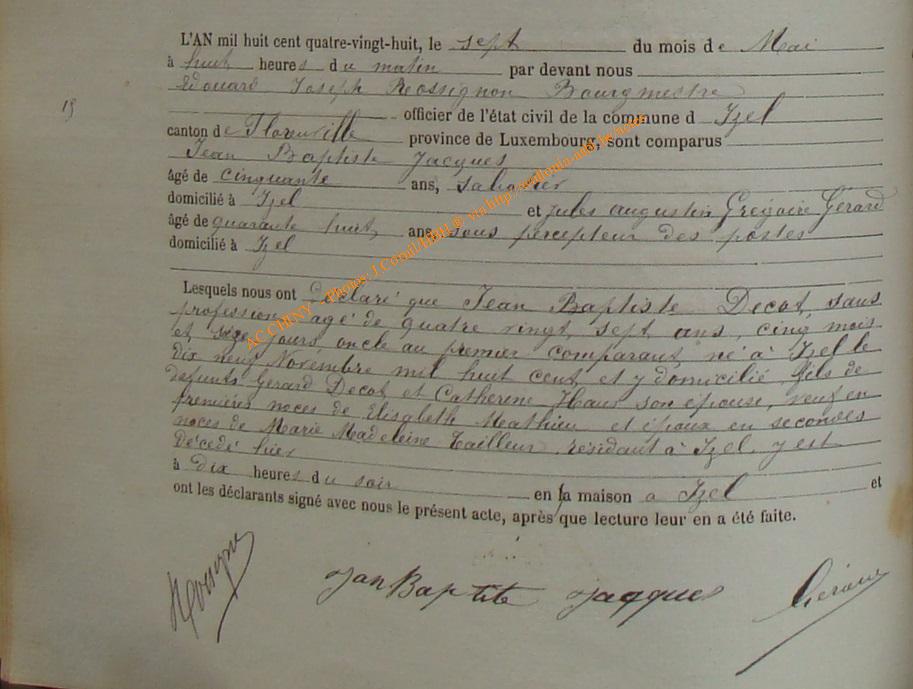 L'AN mil huit cent quatre-vingt-huit, le sept du mois de Mai
à huit heures du matin par devant nous
Edouard Joseph Rossignon Bourgmestre
15
officier de l'état civil de la commune d Izel
canton de Florenville province de Luxembourg, sont comparus
Jean Baptiste Jacques
âgé de cinquante ans, sabotier
domicilié à Izel et Jules Augustin Grégoire Gérard
âgé de quarante huit, ans, sous percepteur des postes
domicilié à Izel
Lesquels nous ont déclaré que Jean Baptiste Decot, sans
profession, agé de quatre vingt sept ans, cinq mois
et jours oncle au premier comparant, né à Izel le
dix neuf Novembre mil huit cent, et y domicilié, fils de
defunts Gerard Decot et Catherene Haus son épouse, veuf en
premières noces de Elisabeth Mathieu et époux en secondes
noces de Marie Madeleine Tailleur, résidant à Izel, y est
décédé hier
à dix heures du soir en la maison à Izel et
ont les déclarants signé avec nous le présent acte, après que lecture leur en a été faite.
Jan Baptite Jacques Gérard
AC CHINY - Photos: J.Cornil/ ® via http://wallonia-asbl.be/home